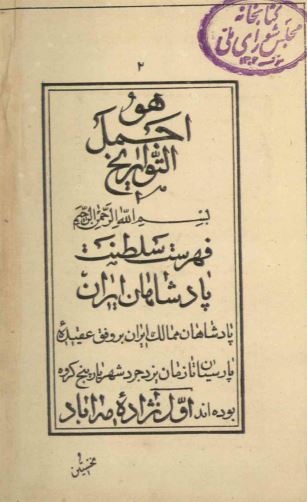 کتابخانه
مجلس شورای ملی
۲
هو
اجمل
التّواریخ
بسم الله الرّحمن الرّحیم
فهرست سلطنت
پادشاهان ایران
پادشاهان ممالک ایران بر وفق عقیدهٔ
پارسیان تا زمان یزدجرد شهریار پنج گروه
بوده اند اوّل نژادهٔ مه اباد
نخستین